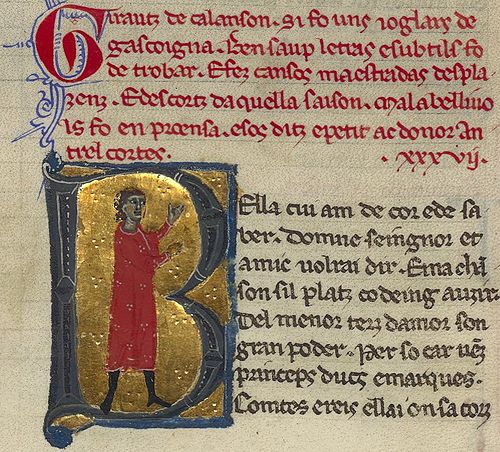 Girautz de calanson. si fo uns ioglars de
gascoigna. Ben saup letras e subtils fo
de trobar. E fez cansos maestradas despla
zenz. E descortz daquella saison. Mal abellivo
is fo en proensa. e sos ditz e petit ac donor An
trel cortes. .xxxvij.
Bella cui am de cor e de sa
ber. Domne seingnor et
amic volrai dir. E ma chā
son sil platz co deing auzir
Del menor terz damor son
gran poder. Per so car uēz
princeps ducs e marques.
Comtes e reis e lai on sa cortz